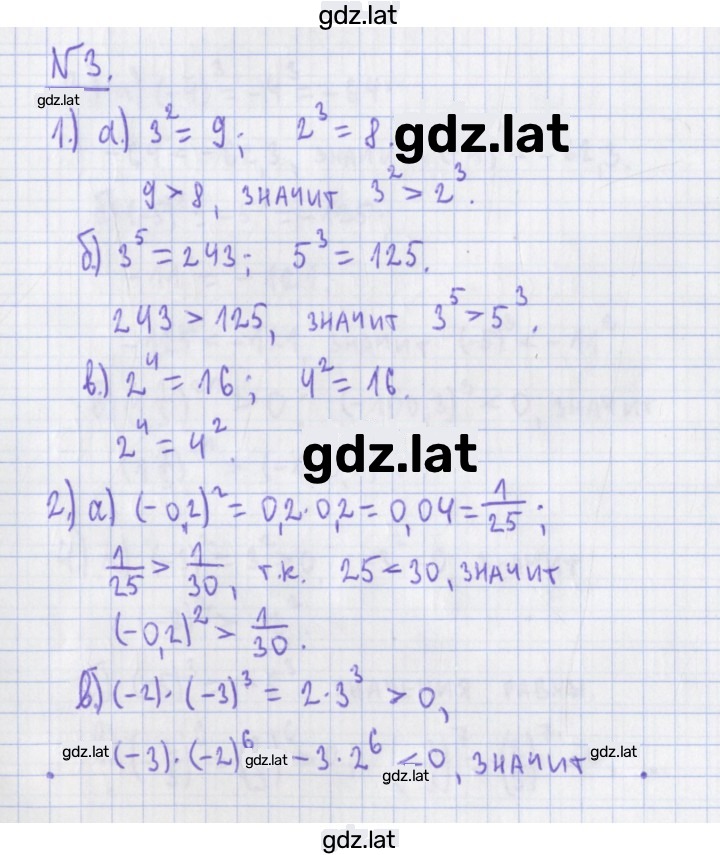 gdz.lat
№ 3.
gdz.lat
1.) а.) 3² = 9; 2³ = 8. gdz.lat
9 > 8, значит 3² > 2³.
б.) 3⁵ = 243; 5³ = 125.
243 > 125, значит 3⁵ > 5³.
в.) 2⁴ = 16; 4² = 16.
2⁴ = 4².
gdz.lat
2.) а.) (-0,2)² = 0,2·0,2 = 0,04 = 1/25;
1/25 > 1/30, т.к. 25 < 30, значит
(-0,2)² > 1/30.
в.) (-2)·(-3)³ = 2·3³ > 0,
gdz.lat (-3)·(-2)⁶ gdz.lat - 3·2⁶ < 0, значит gdz.lat .
gdz.lat
gdz.lat